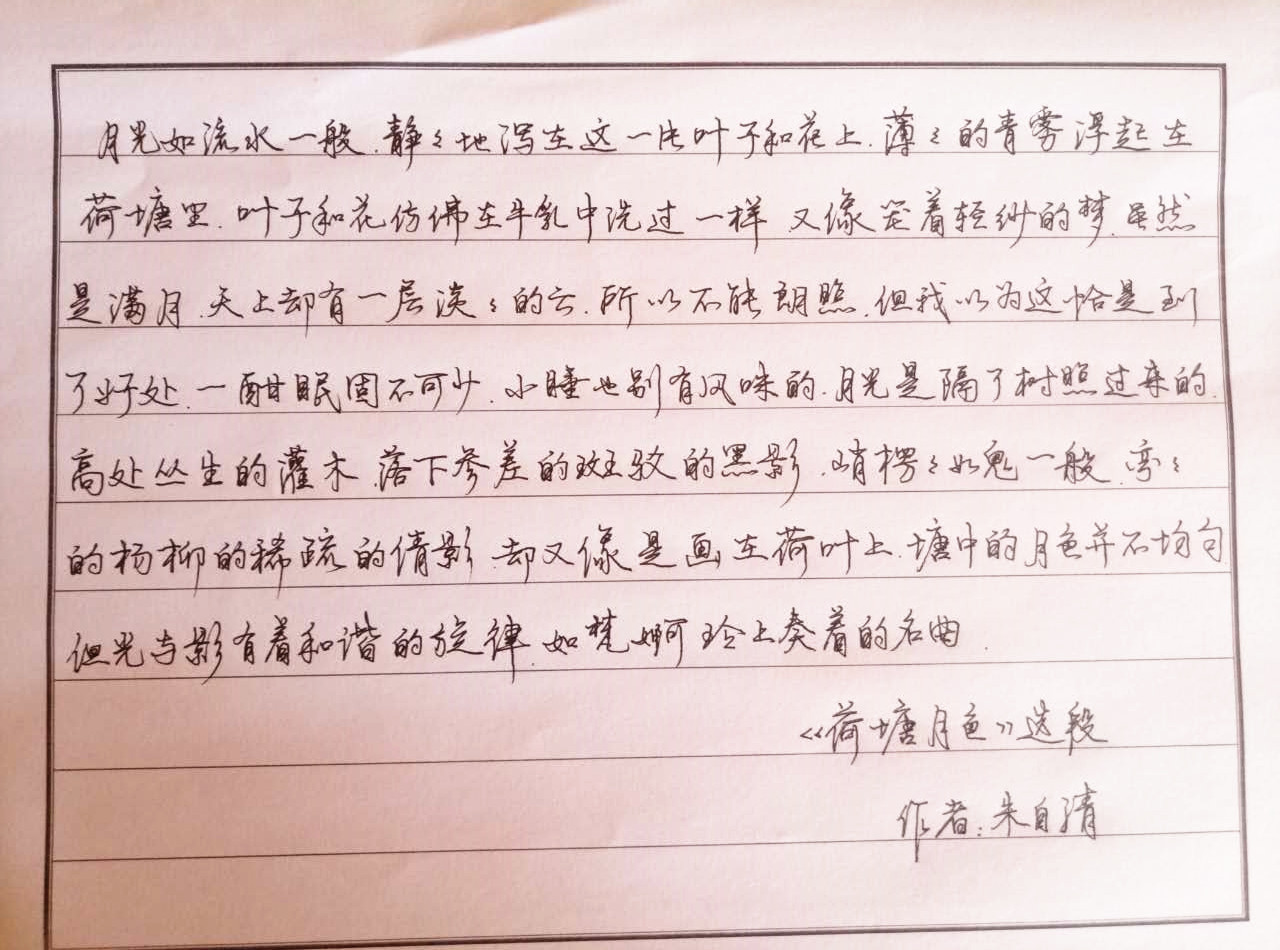 月光如流水一般.静々地泻在这一片叶子和花上.薄々的青雾浮起在
荷塘里.叶子和花仿佛在牛乳中洗过一样.又像笼着轻纱的梦.虽然
是满月.天上却有一层淡々的云.所以不能朗照.但我以为这恰是到
了好处.一酣眠固不可少.小睡也别有风味的.月光是隔了树照过来的.
高处丛生的灌木.落下参差的斑驳的黑影.峭楞々如鬼一般.弯々
的杨柳的稀疏的倩影.却又像是画在荷叶上.塘中的月色并不均匀.
但光与影有着和谐的旋律.如梵婀玲上奏着的名曲.
《荷塘月色》选段
作者:朱自清